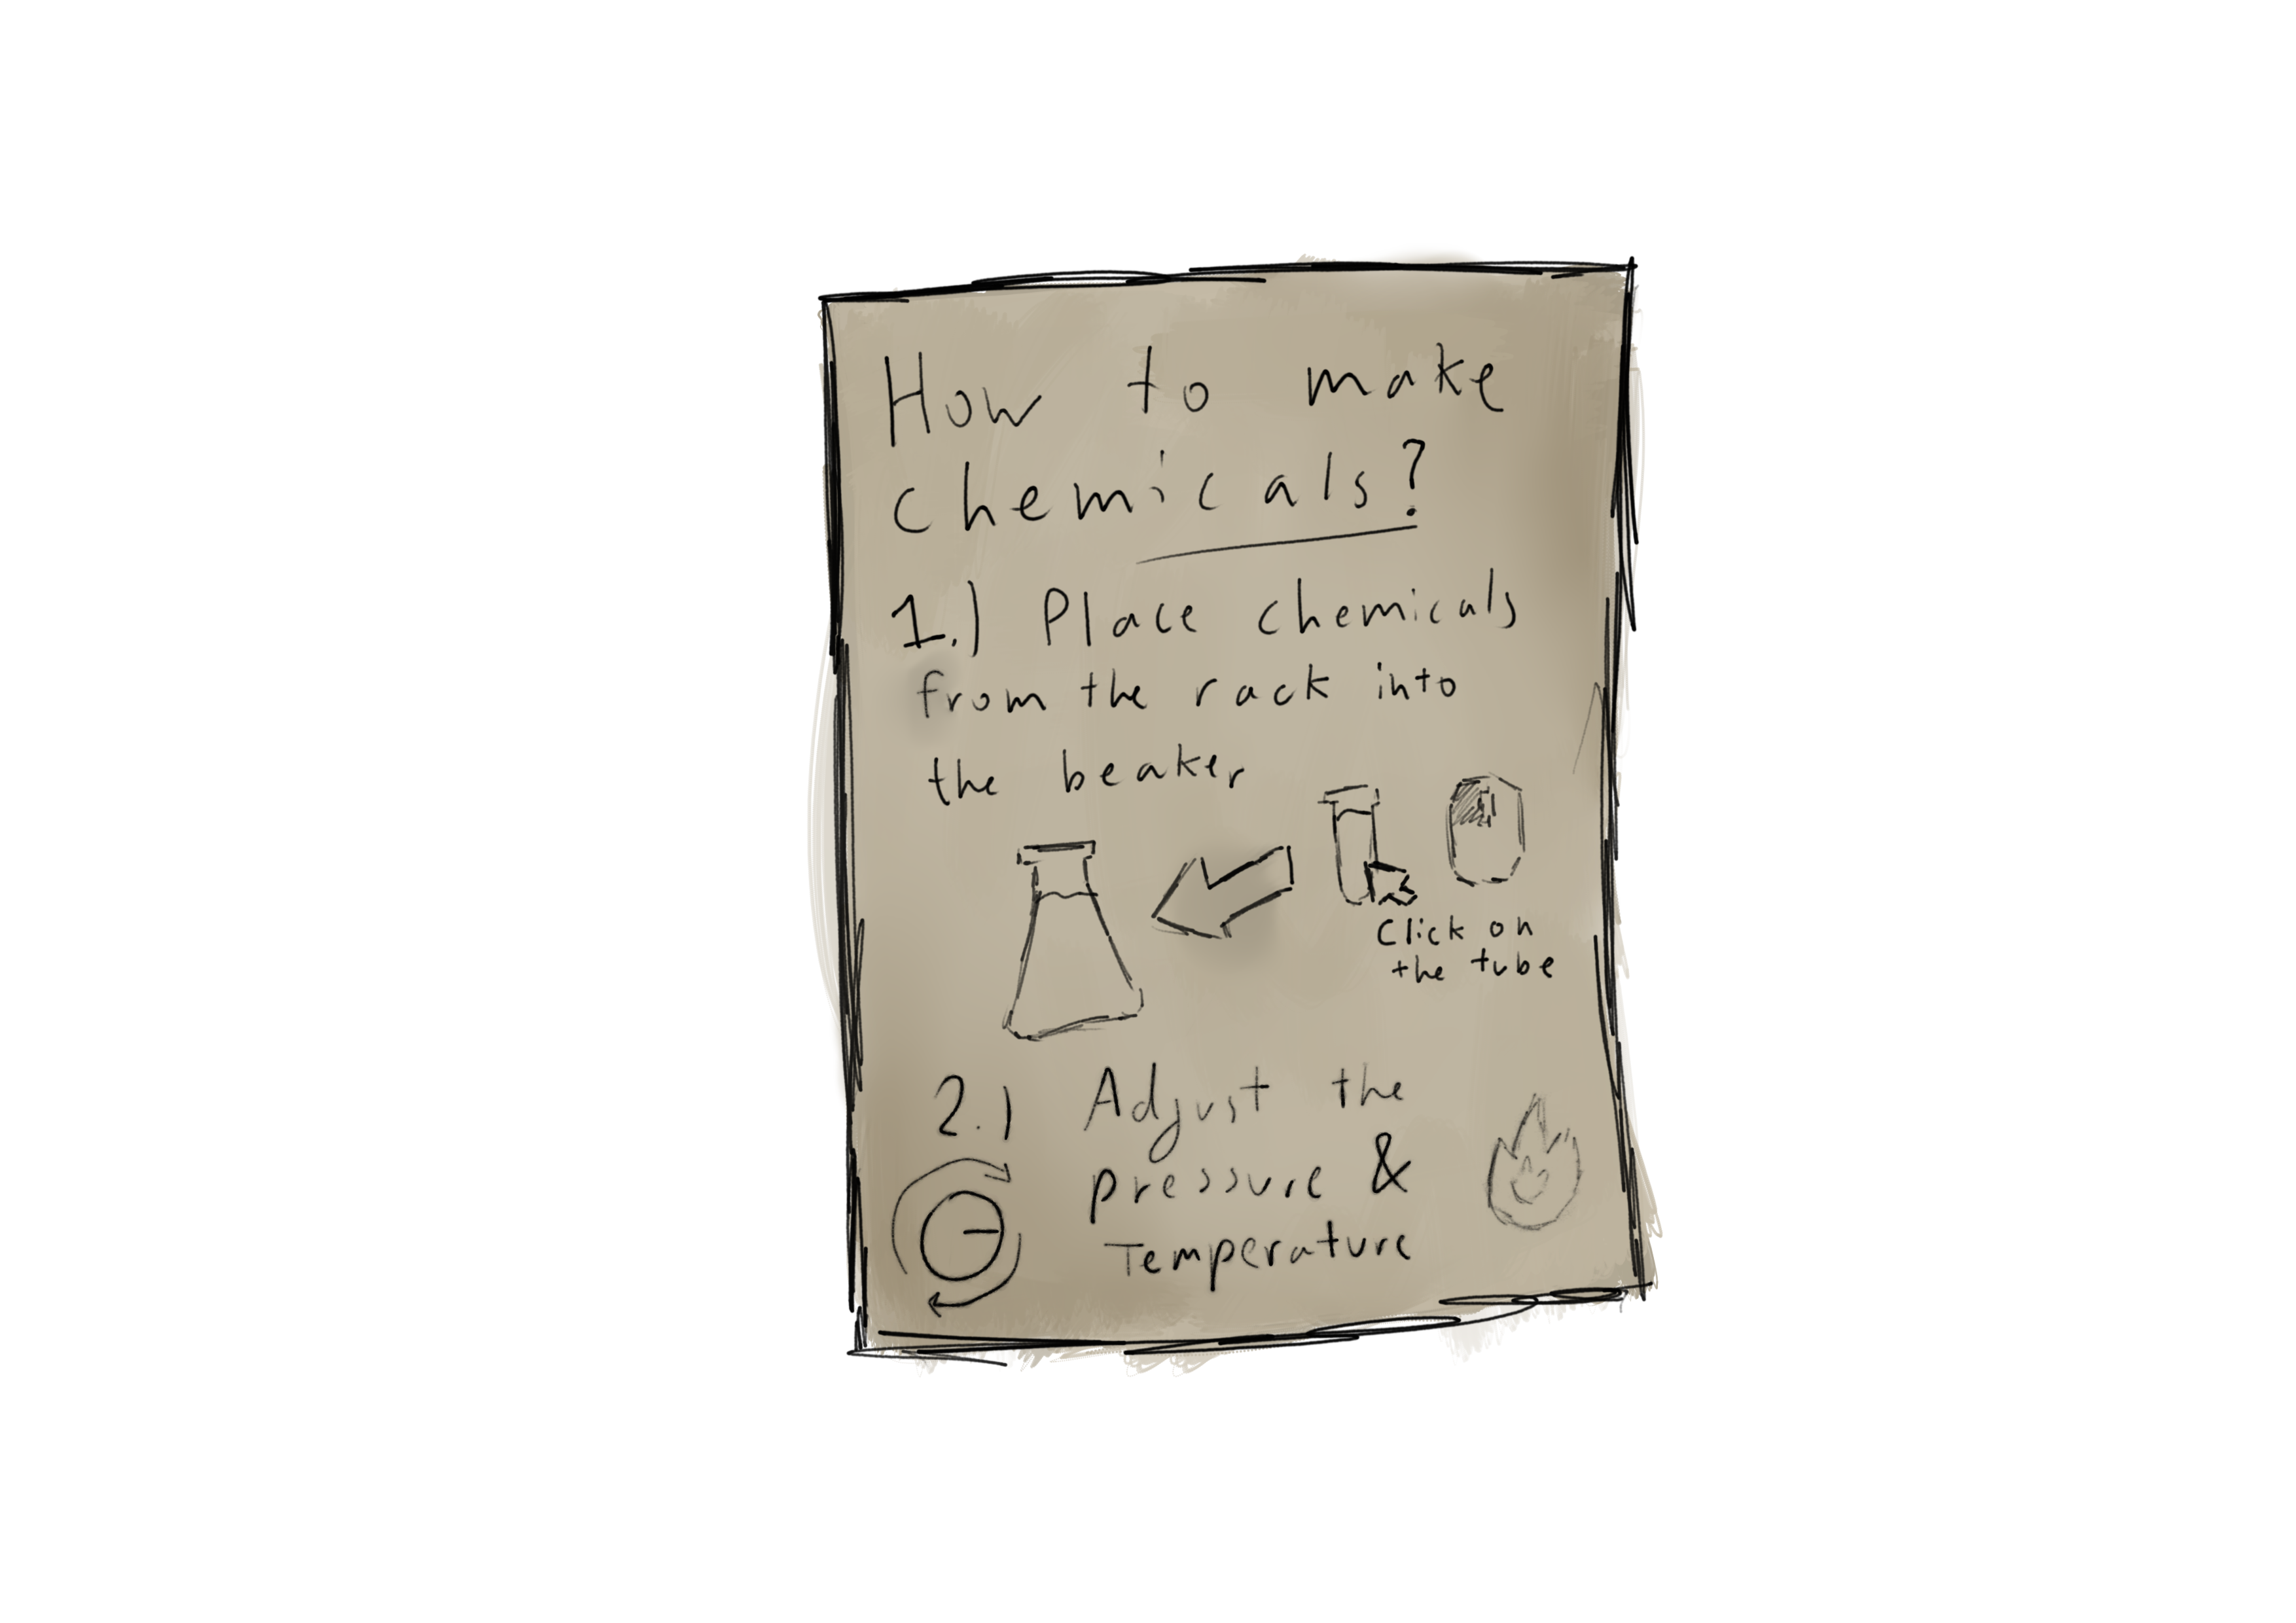 How to make
chemicals?
1.) Place chemicals
from the rack into
the beaker
Click on
the tube
2.) Adjust the
pressure &
Temperature